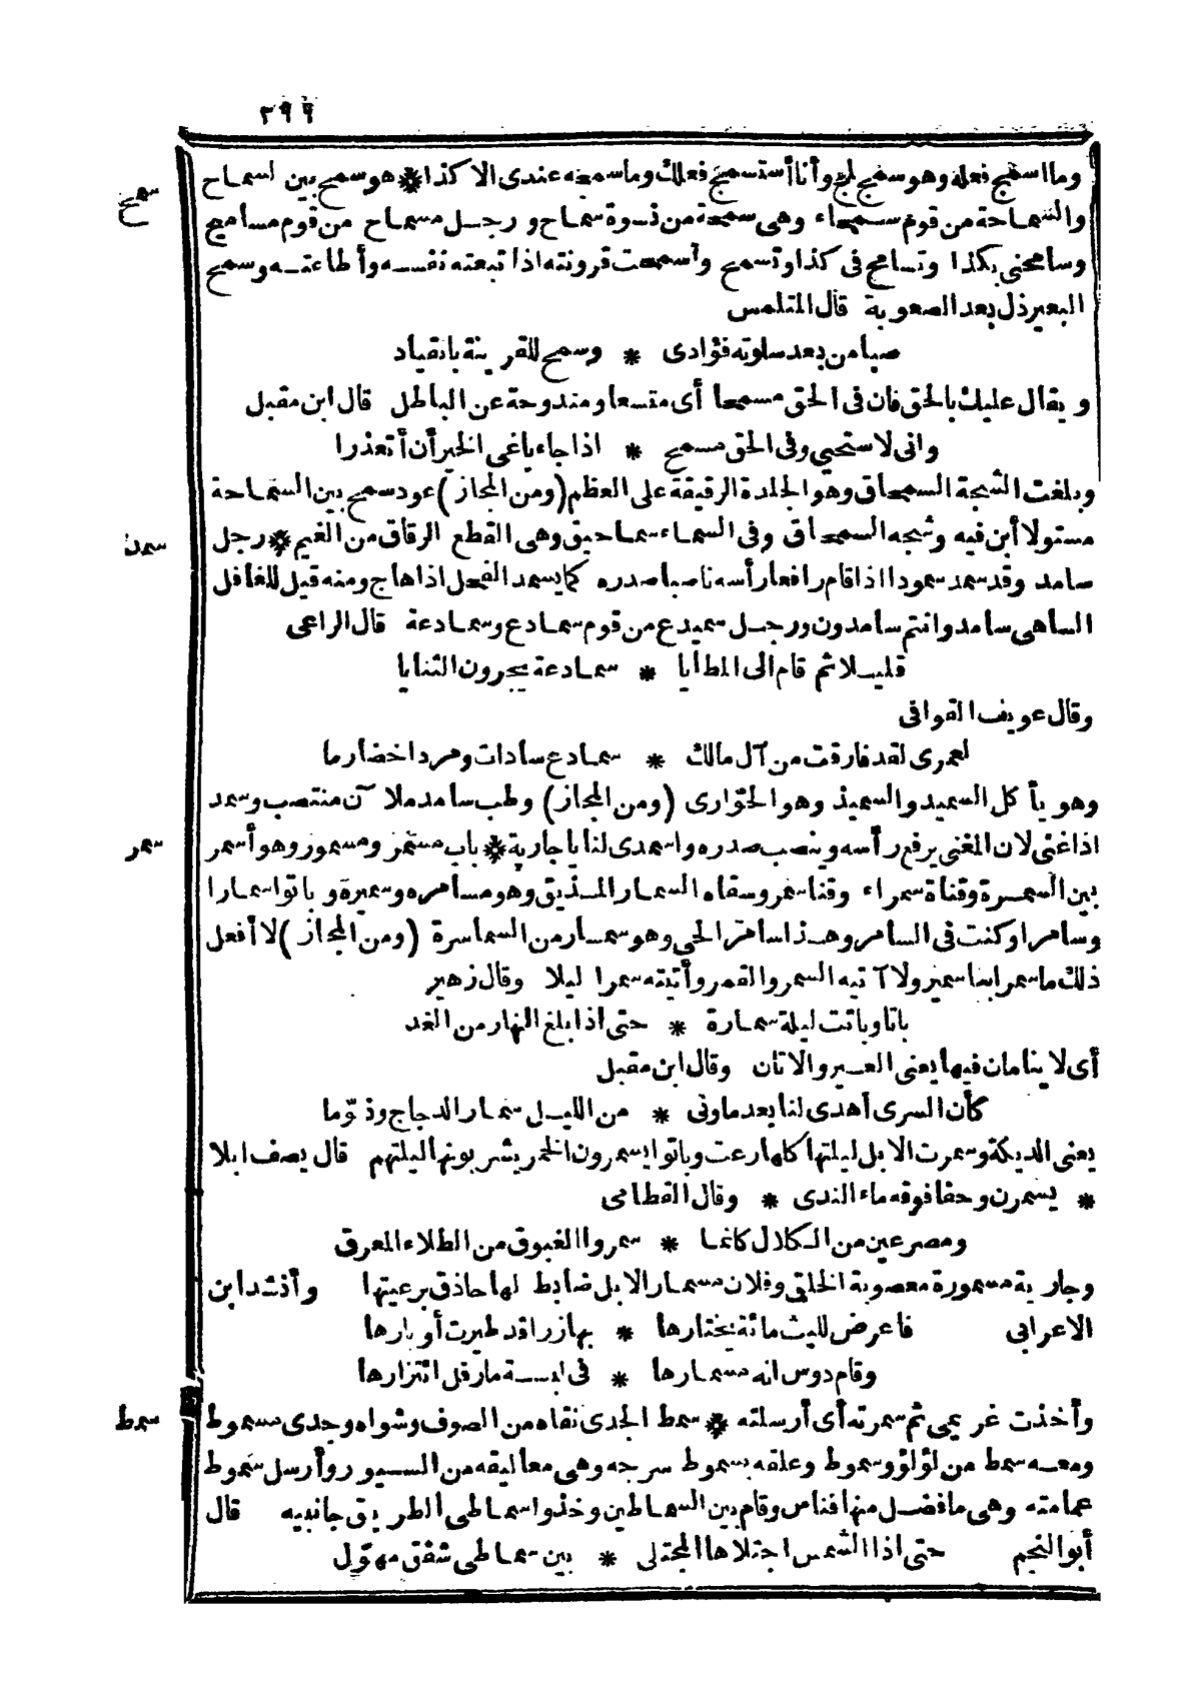 ٢٩٩
وما اسمج فعله وهو سمج لمج وأنا أستسمج فعلك وما سمجه عندى الا كذا * هو سمح بين السماح
سمح
والسماحة من قوم سمحاء وهى سمحة من نسوة سماح ورجل مسماح من قوم مساميح
وسامحنى بكذا وتسامح فى كذا وتسمح وأسمحت قرونته اذا تبعته نفسه وأطاعته وسمح
البعير ذل بعد الصعوبة قال المتلمس
صبا من بعد سلوته فؤادى * وسمح للقرينة بانقياد
ويقال عليك بالحق فان فى الحق مسمحا أى متسعا ومندوحة عن الباطل قال ابن مقبل
وانى لاستحيى وفى الحق مسمح * اذا جاء باغى الخير أن أتعذرا
وبلغت الشجة السمحاق وهو الجلدة الرقيقة على العظم (ومن المجاز) عود سمح بين السماحة
مستو لا أبن فيه وشجه السمحاق وفى السماء سماحيق وهى القطع الرقاق من الغيم * رجل
سمد
سامد وقد سمد سمودا اذا قام رافعا رأسه ناصبا صدره كما يسمد الفحل اذا هاج ومنه قيل للغافل
الساهى سامد وانتم سامدون ورجل سميدع من قوم سمادع وسمادعة قال الراعى
قليلا ثم قام الى المطايا * سمادعة يجرون الثنايا
وقال عويف القوافى
لعمرى لقد فارقت من آل مالك * سمادع سادات ومردا خضارما
وهو يأكل السميد والسميذ وهو الحوّارى (ومن المجاز) وطب سامد ملآن منتصب وسمد
اذا غنى لان المغنى يرفع رأسه وينصب صدره واسمدى لنا يا جارية * باب مسمّر ومسمور وهو أسمر
سمر
بين السمرة وقناة سمراء وقنا سمر وسقاه السمار المذيق وهو مسامره وسميره وباتوا سمارا
وسامرا وكنت فى السامر وهذا سامر الحى وهو سمسار من السماسرة (ومن المجاز) لا أفعل
ذلك ما سمر ابنا سمير ولا آتيه السمر والقمر وأتيته سمرا ليلا وقال زهير
باتا وباتت ليلة سمارة * حتى اذا بلغ النهار من الغد
أى لا ينامان فيها يعنى العير والاتان وقال ابن مقبل
كأن السرى أهدى لنا بعد ماونى * من الليل سمار الدجاج ونوّما
يعنى الديكة وسمرت الابل ليلتها كلها رعت وباتوا يسمرون الخمر يشربونها ليلتهم قال يصف ابلا
* يسمرن وحفا فوقه ماء الندى * وقال القطامى
ومصرعين من الكلال كانما * سمروا الغبوق من الطلاء المعرق
وجارية مسمورة معصوبة الخلق وفلان مسمار الابل ضابط لها حاذق برعيتها وأنشد ابن
الاعرابى فاعرض لليث مائة يختارها * بهازرا قد طيرت أوبارها
وقام دوس انه مسمارها * فى لبسة مارفل ائتزارها
وأخذت غريمى ثم سمرته أى أرسلته * سمط الجدى نقاه من الصوف وشواه وجدى مسموط
سمط
ومعه سمط من لؤلؤ وسموط وعلقه بسموط سرجه وهى معاليقه من السيور وأرسل سموط
عمامته وهى ما فضل منها فناس وقام بين السماطين وخذوا سماطى الطريق جانبيه قال
أبو النجم حتى اذا الشمس اجتلاها المجتلى * بين سماطى شفق مهوّل